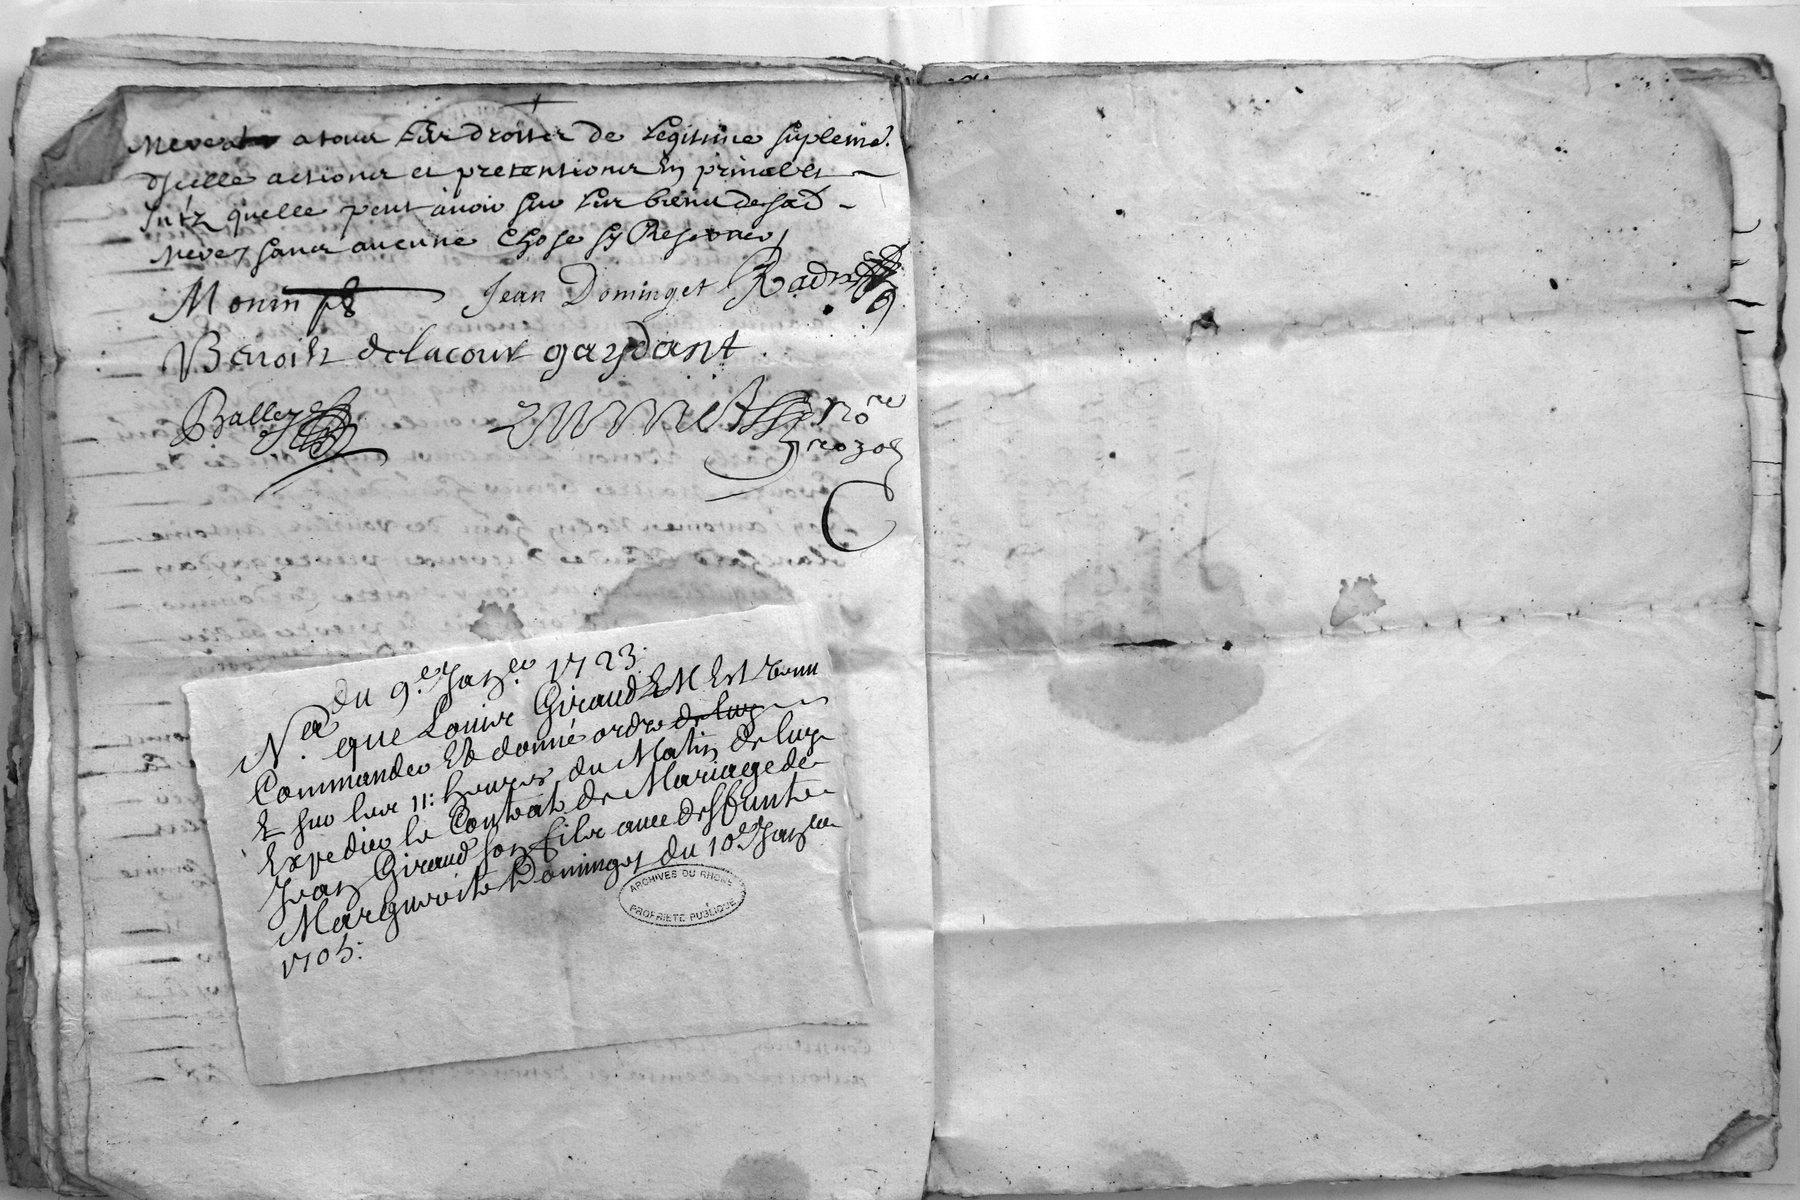 atous ses droits de legitime suplemt
dicelle actions et pretentions En prinal et
quelle peut avoir sur Les biens desad
sans aucune Chose sy Reserver
Monin Jean Dominget
Benoist delacour gaydant
Balley nore
Du 9.e Janer 1723.
Na que Louis Giraud Est venu
Commander Et donné ordre de luy
Et sur les 11: heures du Matin de luy
Expedier le Contrat de Mariage de
Jean Giraud son fils avec deffunte
Marguerite Dominget du 10e Janer
1705:
ARCHIVES DU RHONE
PROPRIETE PUBLIQUE